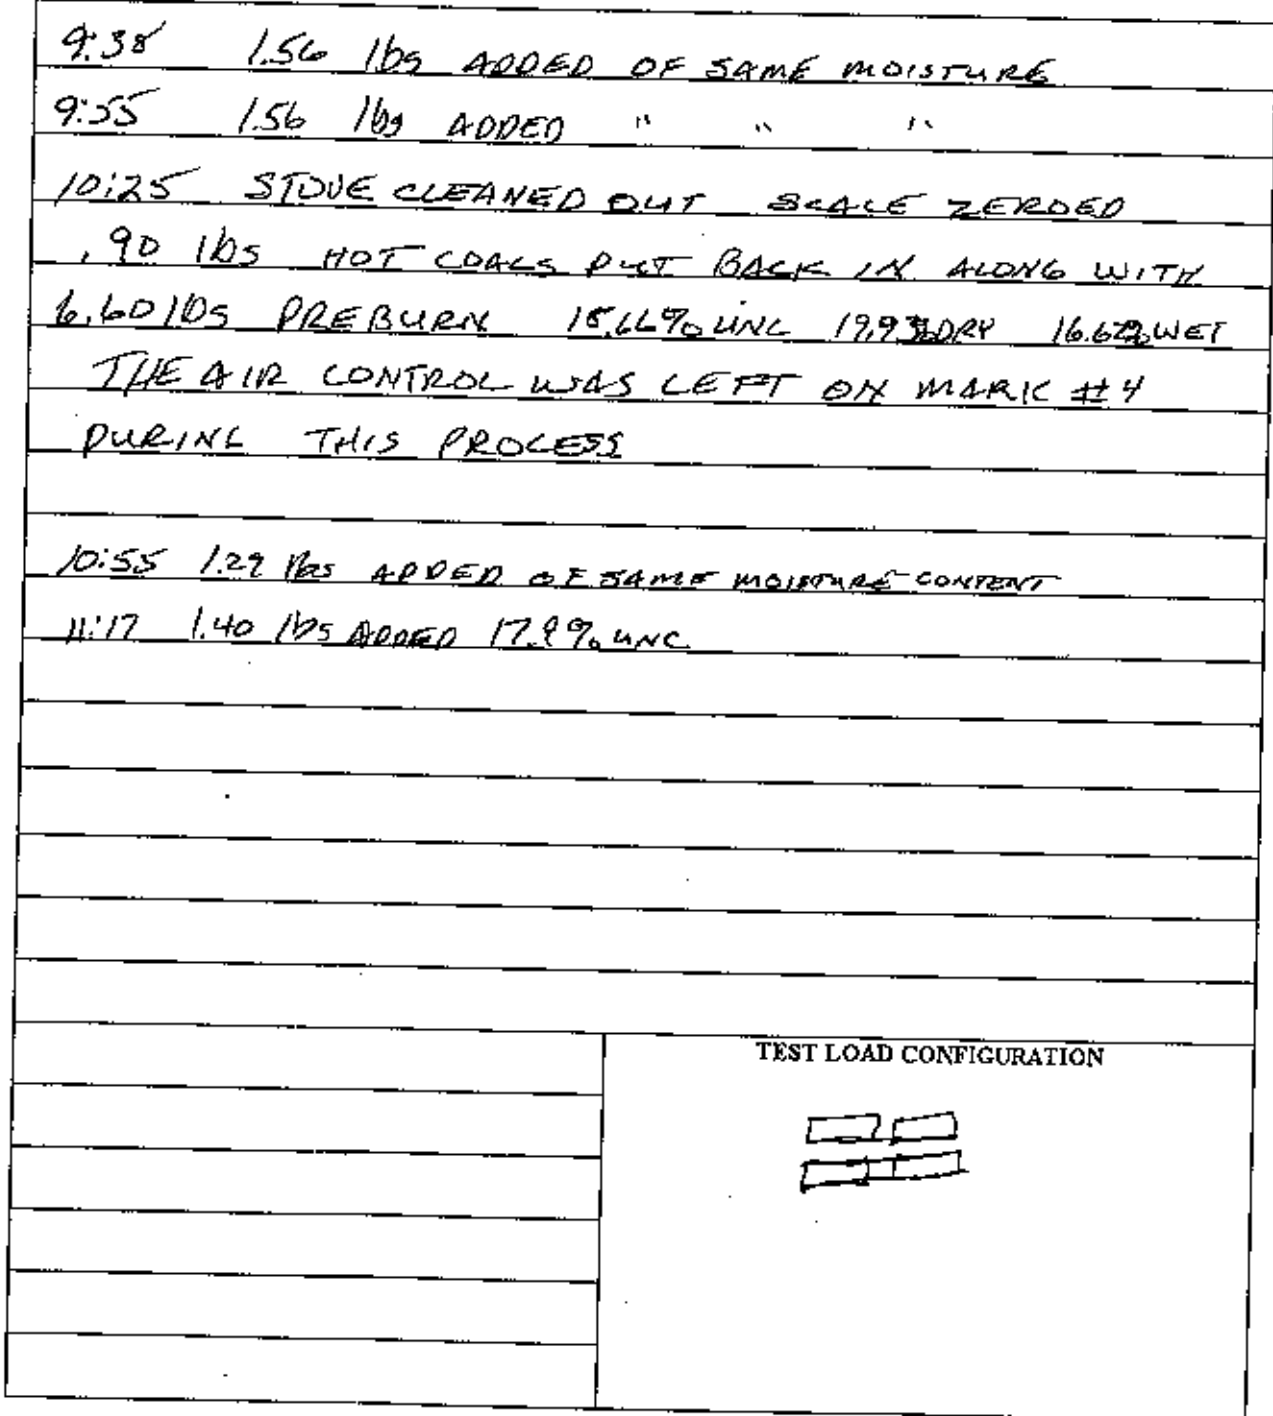 9:38 1.56 lbs ADDED OF SAME MOISTURE
9:55 1.56 lbs ADDED " " "
10:25 STOVE CLEANED OUT SCALE ZEROED
.90 lbs HOT COALS PUT BACK IN ALONG WITH
6.60 lbs PREBURN 18.66% UNC 19.93% DRY 16.62% WET
THE AIR CONTROL WAS LEFT ON MARK #4
DURING THIS PROCESS
10:55 1.29 lbs ADDED OF SAME MOISTURE CONTENT
11:17 1.40 lbs ADDED UNC
TEST LOAD CONFIGURATION